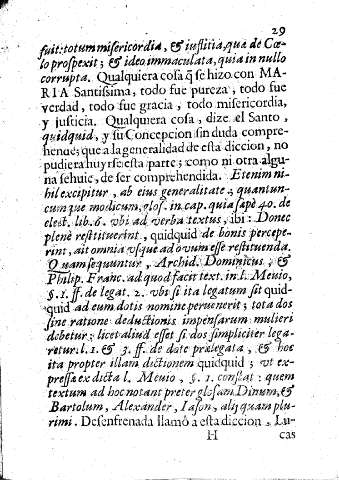 29
fuit: totum misericordia, & iustitia, qua de Cœ-
lo prospexit; & ideo immaculata, quia in nullo
corrupta. Qualquiera cosa q̃ se hizo con MA-
RIA Santissima, todo fue pureza, todo fue
verdad, todo fue gracia, todo misericordia,
y justicia. Qualquiera cosa, dize el Santo,
quidquid, y su Concepcion sin duda compre-
hende; que a la generalidad de esta diccion, no
pudiera huyrse esta parte; como ni otra algu-
na se huie, de ser comprehendida. Etenim ni-
hil excipitur, ab eius generalitate; quantun-
cunque modicum, glos. in cap. quia sæpe 40. de
elect. lib. 6. vbi ad verba textus, ibi: Donec
plenè restituerint, quidquid de bonis percepe-
rint, ait omnia vsque ad ovum esse restituenda.
Quam sequuntur, Archid. Dominicus, &
Philip. Franc. ad quod facit text. in l. Mevio,
§. 1. ff. de legat. 2. vbi si ita legatum sit quid-
quid ad eum dotis nomine pervenerit; tota dos
sine ratione deductionis impensarum mulieri
debetur; licet aliud esset si dos simpliciter lega-
retur. l. 1. & 3. ff. de dote prælegata, & hoc
ita propter illam dictionem quidquid; vt ex-
pressa ex dicta l. Mevio, §. 1. constat: quem
textum ad hoc notant preter glosam Dinum, &
Bartolum, Alexander, Iason, alij quam plu-
rimi. Desenfrenada llamò a esta diccion, Lu-
H cas